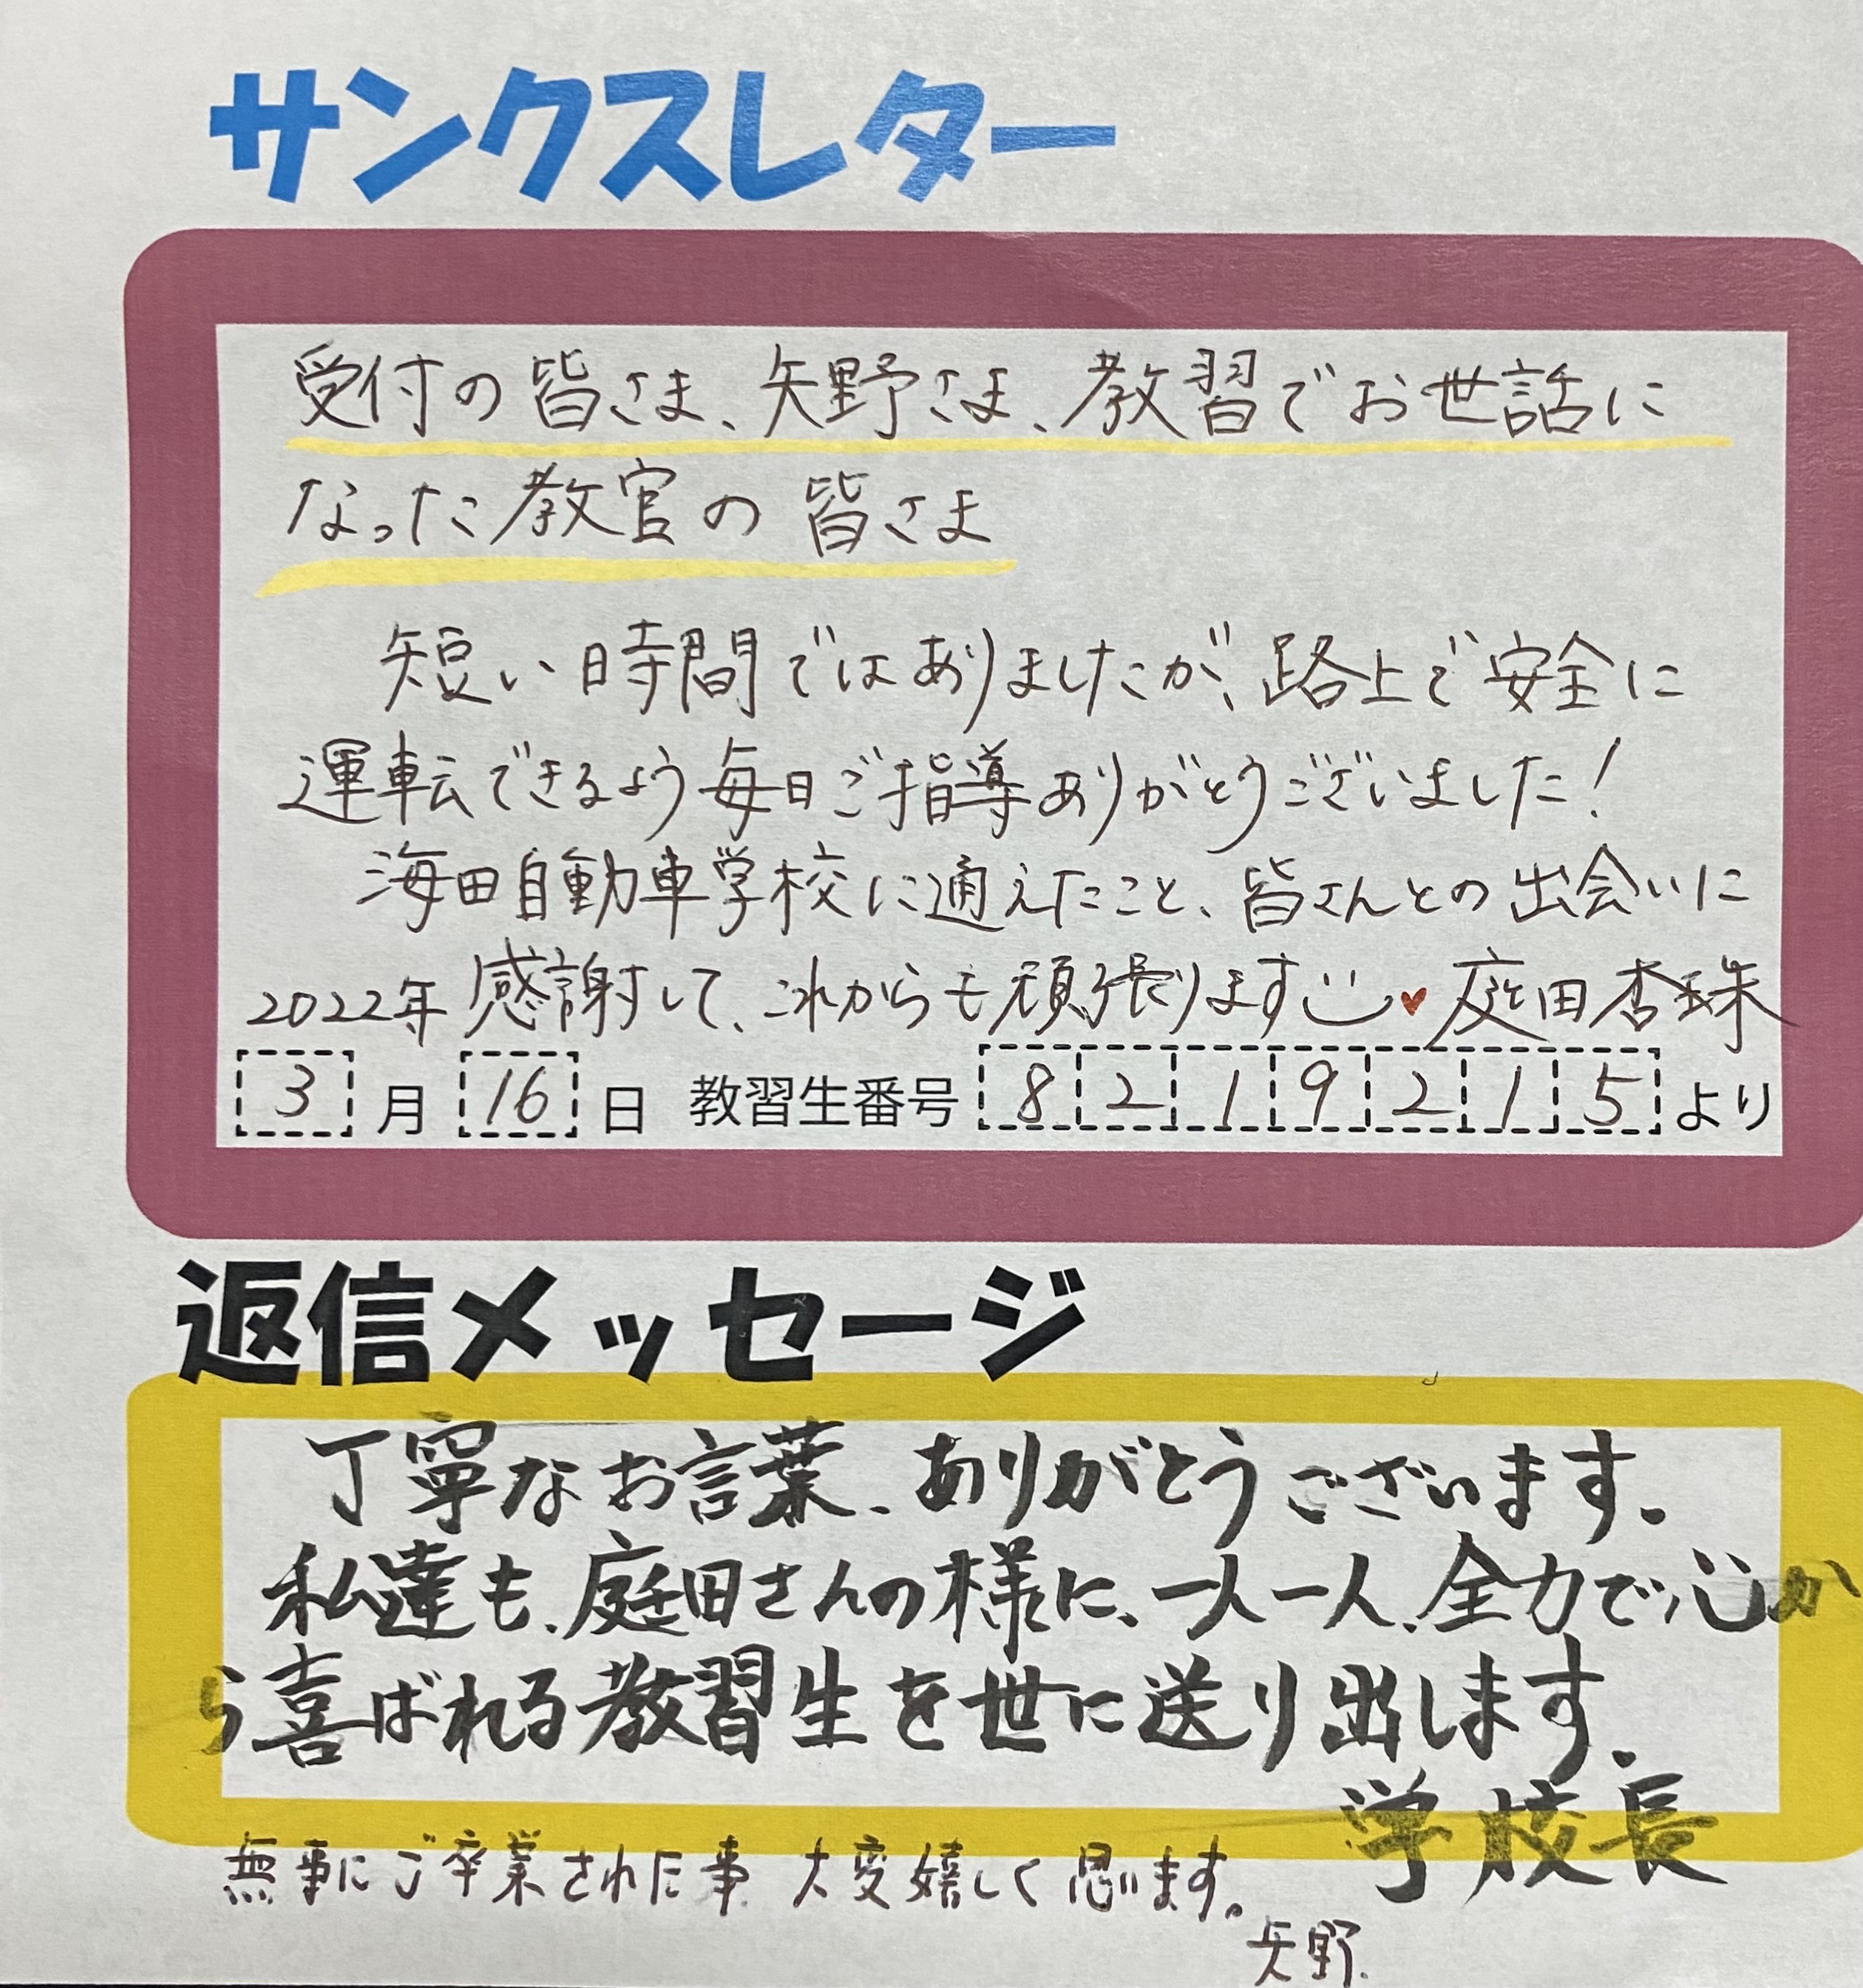 サンクスレター
受付の皆さま、矢野さま、教習でお世話に
なった教官の皆さま
短い時間ではありましたが、路上で安全に
運転できるよう毎日ご指導ありがとうございました!
海田自動車学校に通えたこと、皆さんとの出会いに
感謝して、これからも頑張ります 庭田杏珠
2022年
3月16日 教習生番号 8219215より
返信メッセージ
丁寧なお言葉、ありがとうございます。
私達も、庭田さんの様に、一人一人、全力で心か
ら喜ばれる教習生を世に送り出します。
学校長
無事にご卒業された事 大変嬉しく思います。
矢野